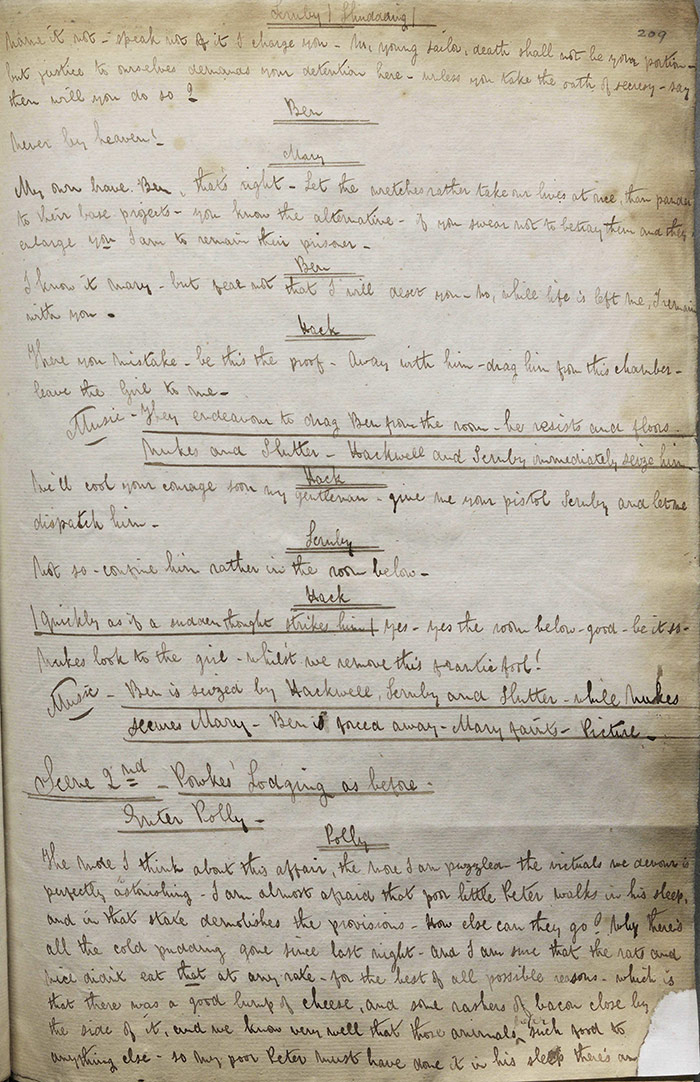 Scruby / Shuddering /
209
Name it not - speak not of it I charge you - No, young sailor, death shall not be your portion -
but justice to ourselves demands your detention here - unless you take the oath of secresy - say
then will you do so?
Ben
Never by heaven!
Mary
My own brave Ben, that's right - Let the wretches rather take our lives at once, than pander
to their base projects - you know the alternative - if you swear not to betray them and they
enlarge you I am to remain their prisoner -
Ben
I know it Mary - but fear not that I will desert you - No, while life is left me, I remain
with you -
Hack
There you mistake - be this the proof - Away with him - drag him from this chamber -
leave the Girl to me -
Music - They endeavour to drag Ben from the room - he resists and floors
Nukes and Flutter - Hackwell and Scruby immediately seize him
Hack
We'll cool your courage soon my gentleman - give me your pistol Scruby and let me
dispatch him -
Scruby
Not so - confine him rather in the room below -
Hack
/ quickly as if a sudden thought strikes him / yes - yes the room below - good - be it so -
Nukes look to the girl - whilst we remove this frantic fool!
Music - Ben is seized by Hackwell, Scruby and Flutter - while Nukes
secures Mary - Ben is forced away - Mary faints - Picture -
Scene 2nd - Powkes' Lodging as before -
Enter Polly -
Polly
The more I think about this affair, the more I am puzzled - the victuals we devour is
perfectly astonishing - I am almost afraid that poor little Peter walks in his sleep,
and in that state demolishes the provisions - How else can they go? Why there's
all the cold pudding gone since last night - and I am sure that the rats and
mice didn't eat that at any rate - for the best of all possible reasons - which is
that there was a good lump of cheese, and some rashers of bacon close by
the side of it, and we know very well that those animals such food to
anything else - so my poor Peter must have done it in his sleep there's an